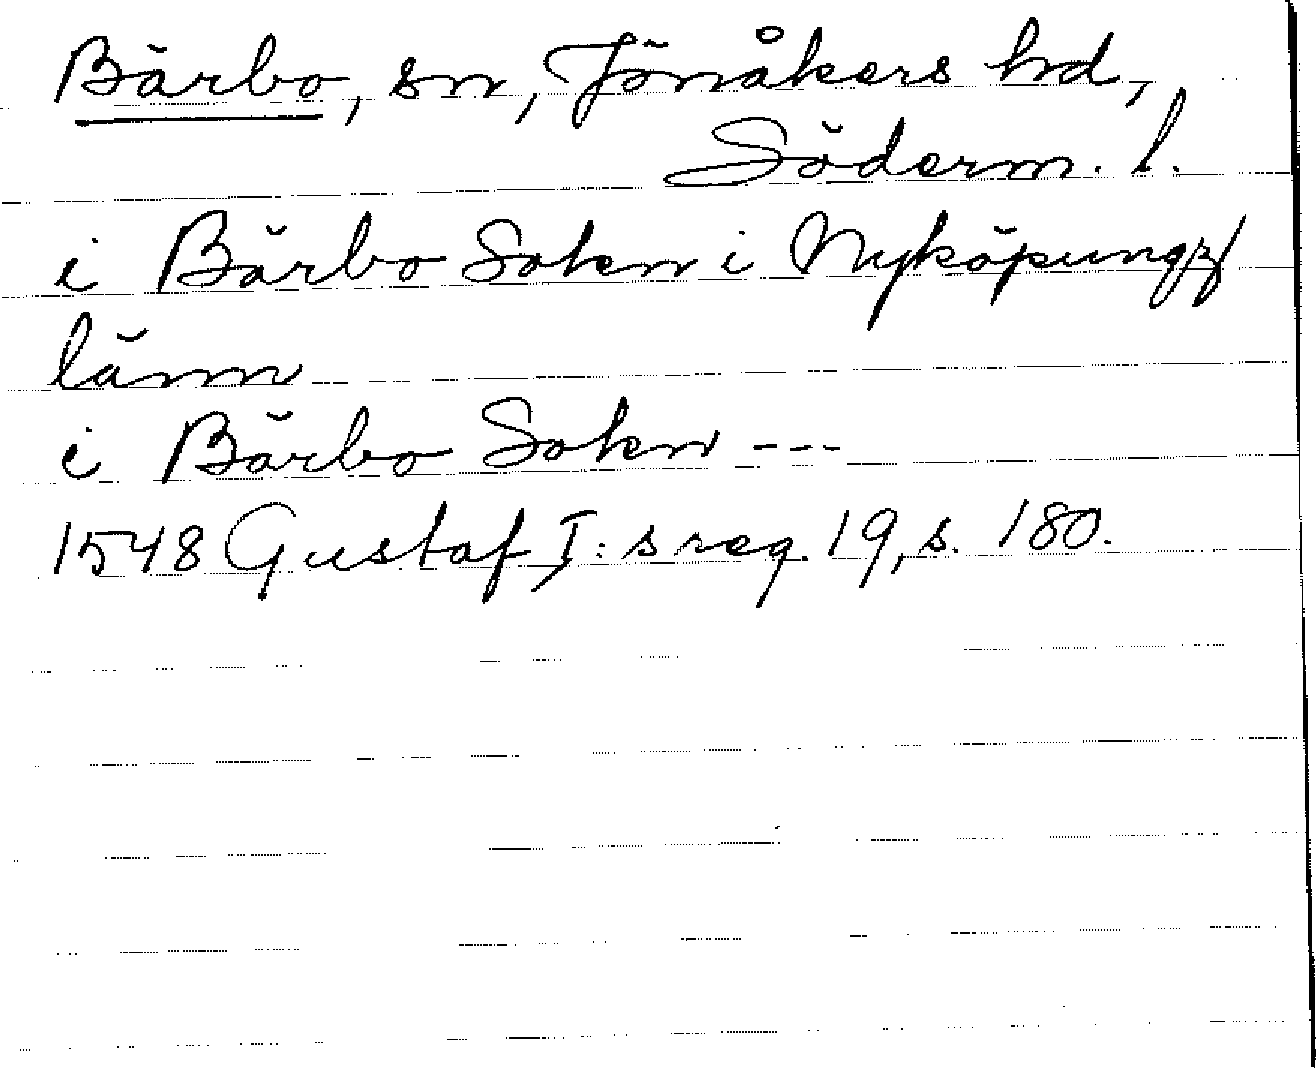 Bärbo, sn, Jönåkers hd,
Söderm. l.
i Bärbo Sokn i Nyköpungz
länn
i Bärbo Sokn ---
1548 Gustaf I:s reg. 19, s. 180.